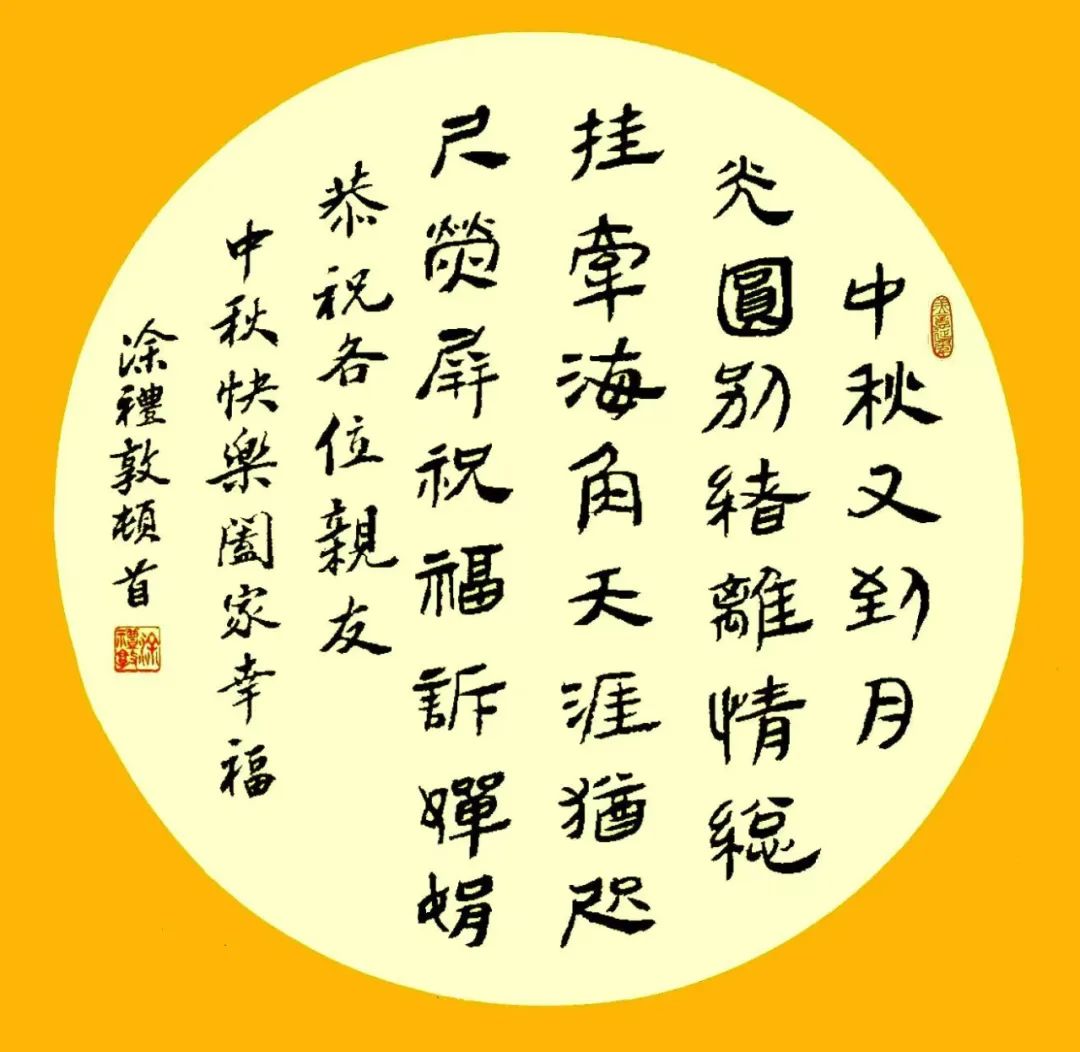 中秋又到月
光圓別緒離情總
挂牽海角天涯猶咫
尺熒屏祝福訴嬋娟
恭祝各位親友
中秋快樂闔家幸福
涂禮敦頓首
涂禮敦